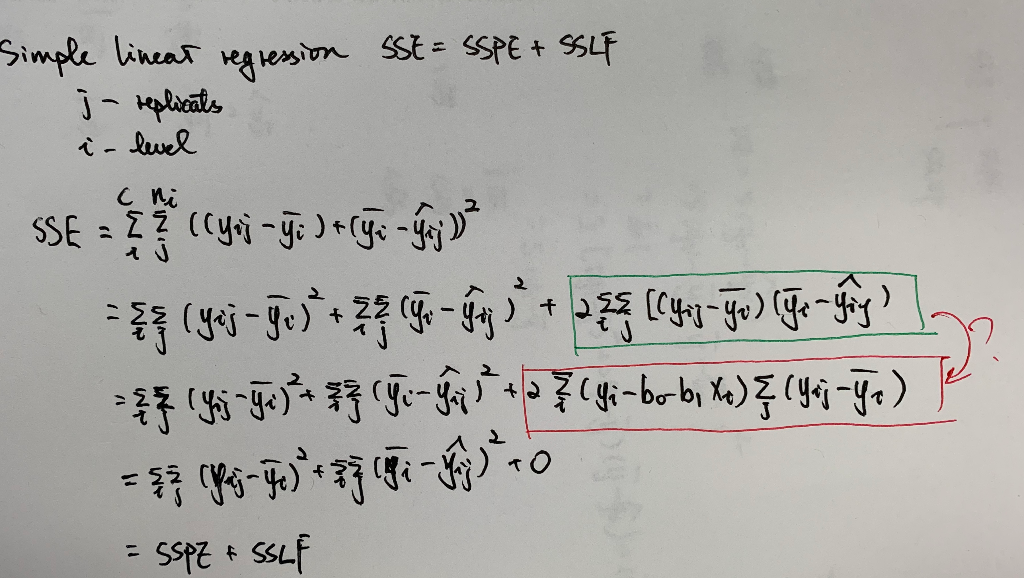 Simple linear regression SSE = SSPE + SSLF
j - replicats
i - level
SSE = Σ_i^c Σ_j^{n_i} ((y_ij - ȳ_i) + (ȳ_i - ŷ_ij))²
= Σ_i Σ_j (y_ij - ȳ_i)² + Σ_i Σ_j (ȳ_i - ŷ_ij)² + 2 Σ_i Σ_j [(y_ij - ȳ_i)(ȳ_i - ŷ_ij) ?
= Σ_i Σ_j (y_ij - ȳ_i)² + Σ_i Σ_j (ȳ_i - ŷ_ij)² + 2 Σ_i (y_i - b_0 - b_1 X_i) Σ_j (y_ij - ȳ_i)
= Σ_i Σ_j (y_ij - ȳ_i)² + Σ_i Σ_j (ȳ_i - ŷ_ij)² + 0
= SSPE + SSLF